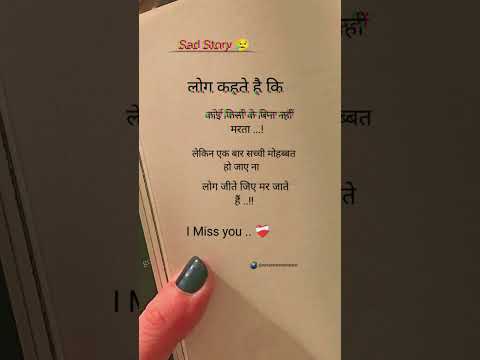 Sad Story 😢
लोग कहते है कि
कोई किसी के बिना नहीं
मरता ...!
लेकिन एक बार सच्ची मोहब्बत
हो जाए ना
लोग जीते जिए मर जाते
हैं ..!!
I Miss you .. ❤️‍🩹